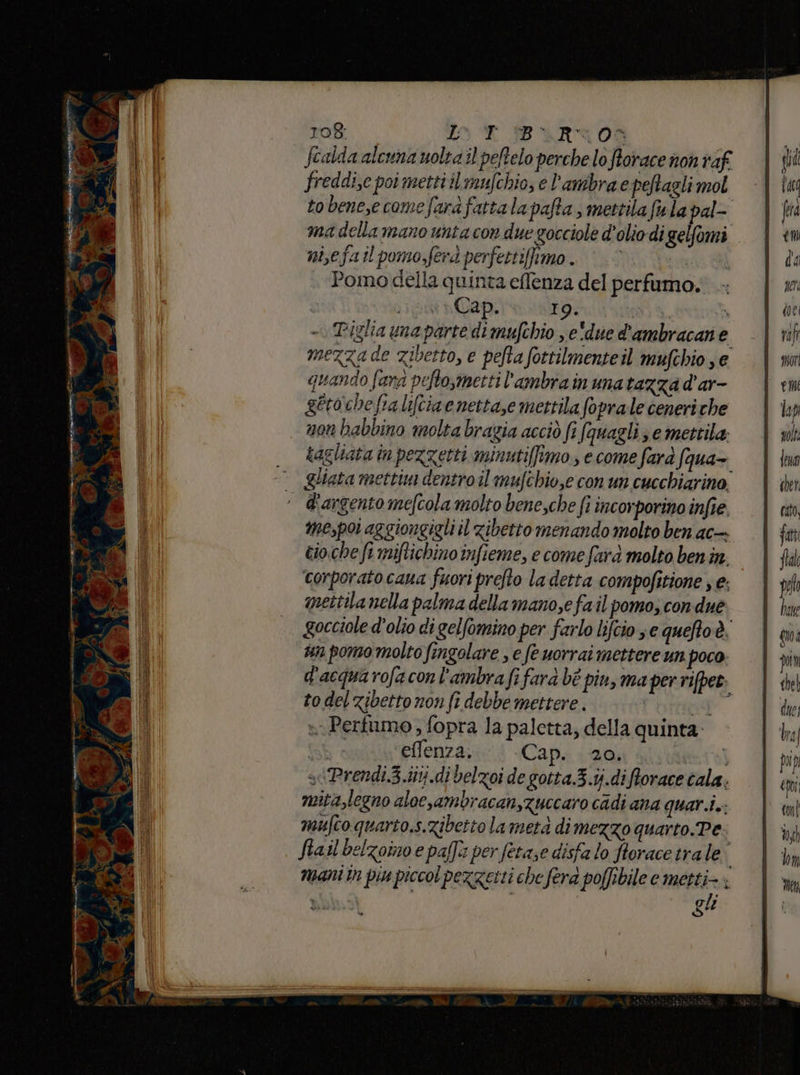 108 LIBRO
ſcalda alcuna uolta il peſtelo perche lo ſtorace non raf
freddi, e poi metti il muſchio, e l'ambra e peſtagli mol
to bene, e come ſarà fatta la paſta, mettila ſu la pal-
ma della mano unta con due gocciole d'olio di gelſomi
ni, e fa il pomo, ſerà perfettiſſimo.
Pomo della quinta eſſenza del perfumo.
Cap. 19.
Piglia una parte di muſchio, e due d'ambracan e
mezza de zibetto, e peſta ſottilmente il muſchio, e
quando ſarà peſto, metti l'ambra in una tazza d'ar-
gẽto che ſia liſcia e netta, e mettila ſopra le ceneri che
non habbino molta bragia acciò ſi ſquagli, e mettila
tagliata in pezzetti minutiſſimo, e come ſarà ſqua-
gliata mettiui dentro il muſchio, e con un cucchiarino
d'argento meſcola molto bene, che ſi incorporino inſie
me, poi aggiongigli il zibetto menando molto ben ac-
cio che ſi miſtichino inſieme, e come ſarà molto ben in
corporato caua fuori preſto la detta compoſitione, e
mettila nella palma della mano, e fa il pomo, con due
gocciole d'olio di gelſomino per farlo liſcio, e queſto è
un pomo molto ſingolare, e ſe uorrai mettere un poco
d'acqua roſa con l'ambra ſi farà bẽ piu, ma per riſpet
to del zibetto non ſi debbe mettere.
Perfumo, ſopra la paletta, della quinta
eſſenza. Cap. 20.
Prendi.℥.iiij.di belzoi de gotta.℥.ij.di ſtorace cala.
mita, legno aloe, ambracan, zuccaro cādi ana quar.i.
muſco quarto.s.zibetto la metà di mezzo quarto.Pe
ſta il belzoino e paſſa per ſeta, e disfa lo ſtorace tra le
mani in piu piccol pezzetti che ſerà poſſibile e metti-
gli